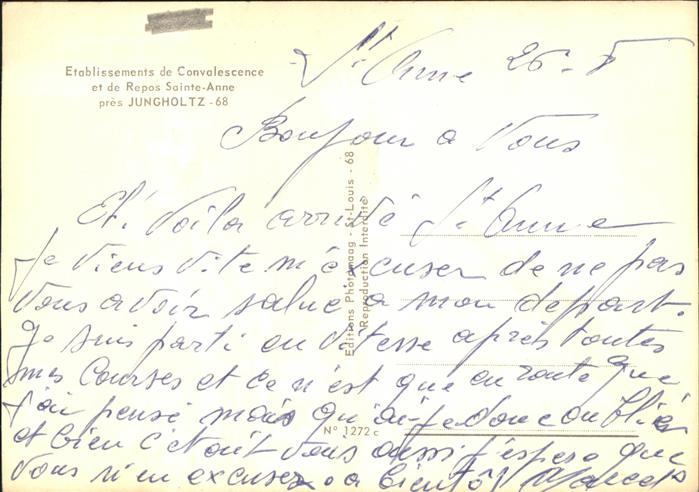 Etablissements de Convalescence
et de Repos Sainte-Anne
près JUNGHOLTZ - 68
St Anne 26 - 5
Bonjour a Vous
Et. Voila arrivé St Anne
Je viens vite m'éxcuser de ne pas
Vous avoir salué a mon depart.
Je suis parti en vitesse après toutes
mes Courses et ce n'est que en route que
j'ai pensé mais qu'ai-je donc oublier
et bien c'etait vous aussi j'espere que
Vous m'en excusez a bientôt
Editions Photomaag - St-Louis - 68
Reproduction Interdite
N° 1272 c